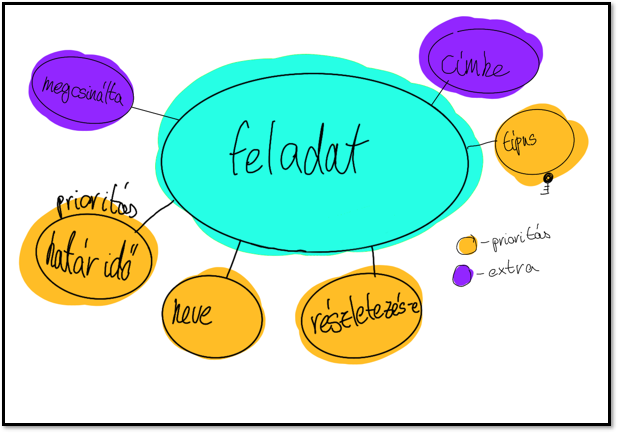 címke
megcsinálta
feladat
típus
prioritás
határidő
neve
részletezése
- prioritás
- extra